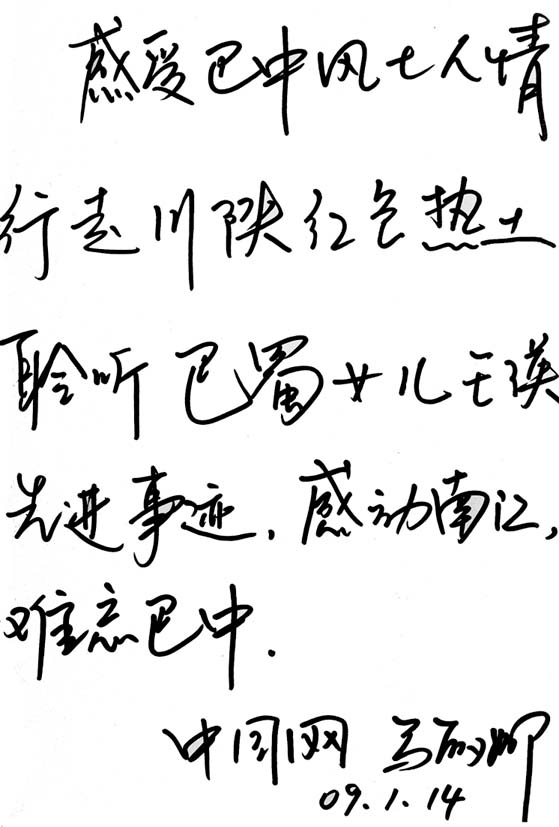 感受巴中风土人情
行走川陕红色热土
聆听巴蜀女儿王瑛
先进事迹.感动南江,
难忘巴中.
中国网 马
09.1.14